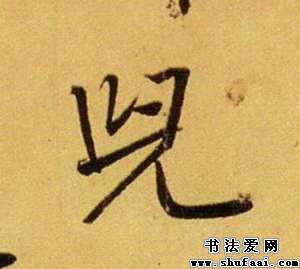 兒
书法爱网
www.shufaai.com